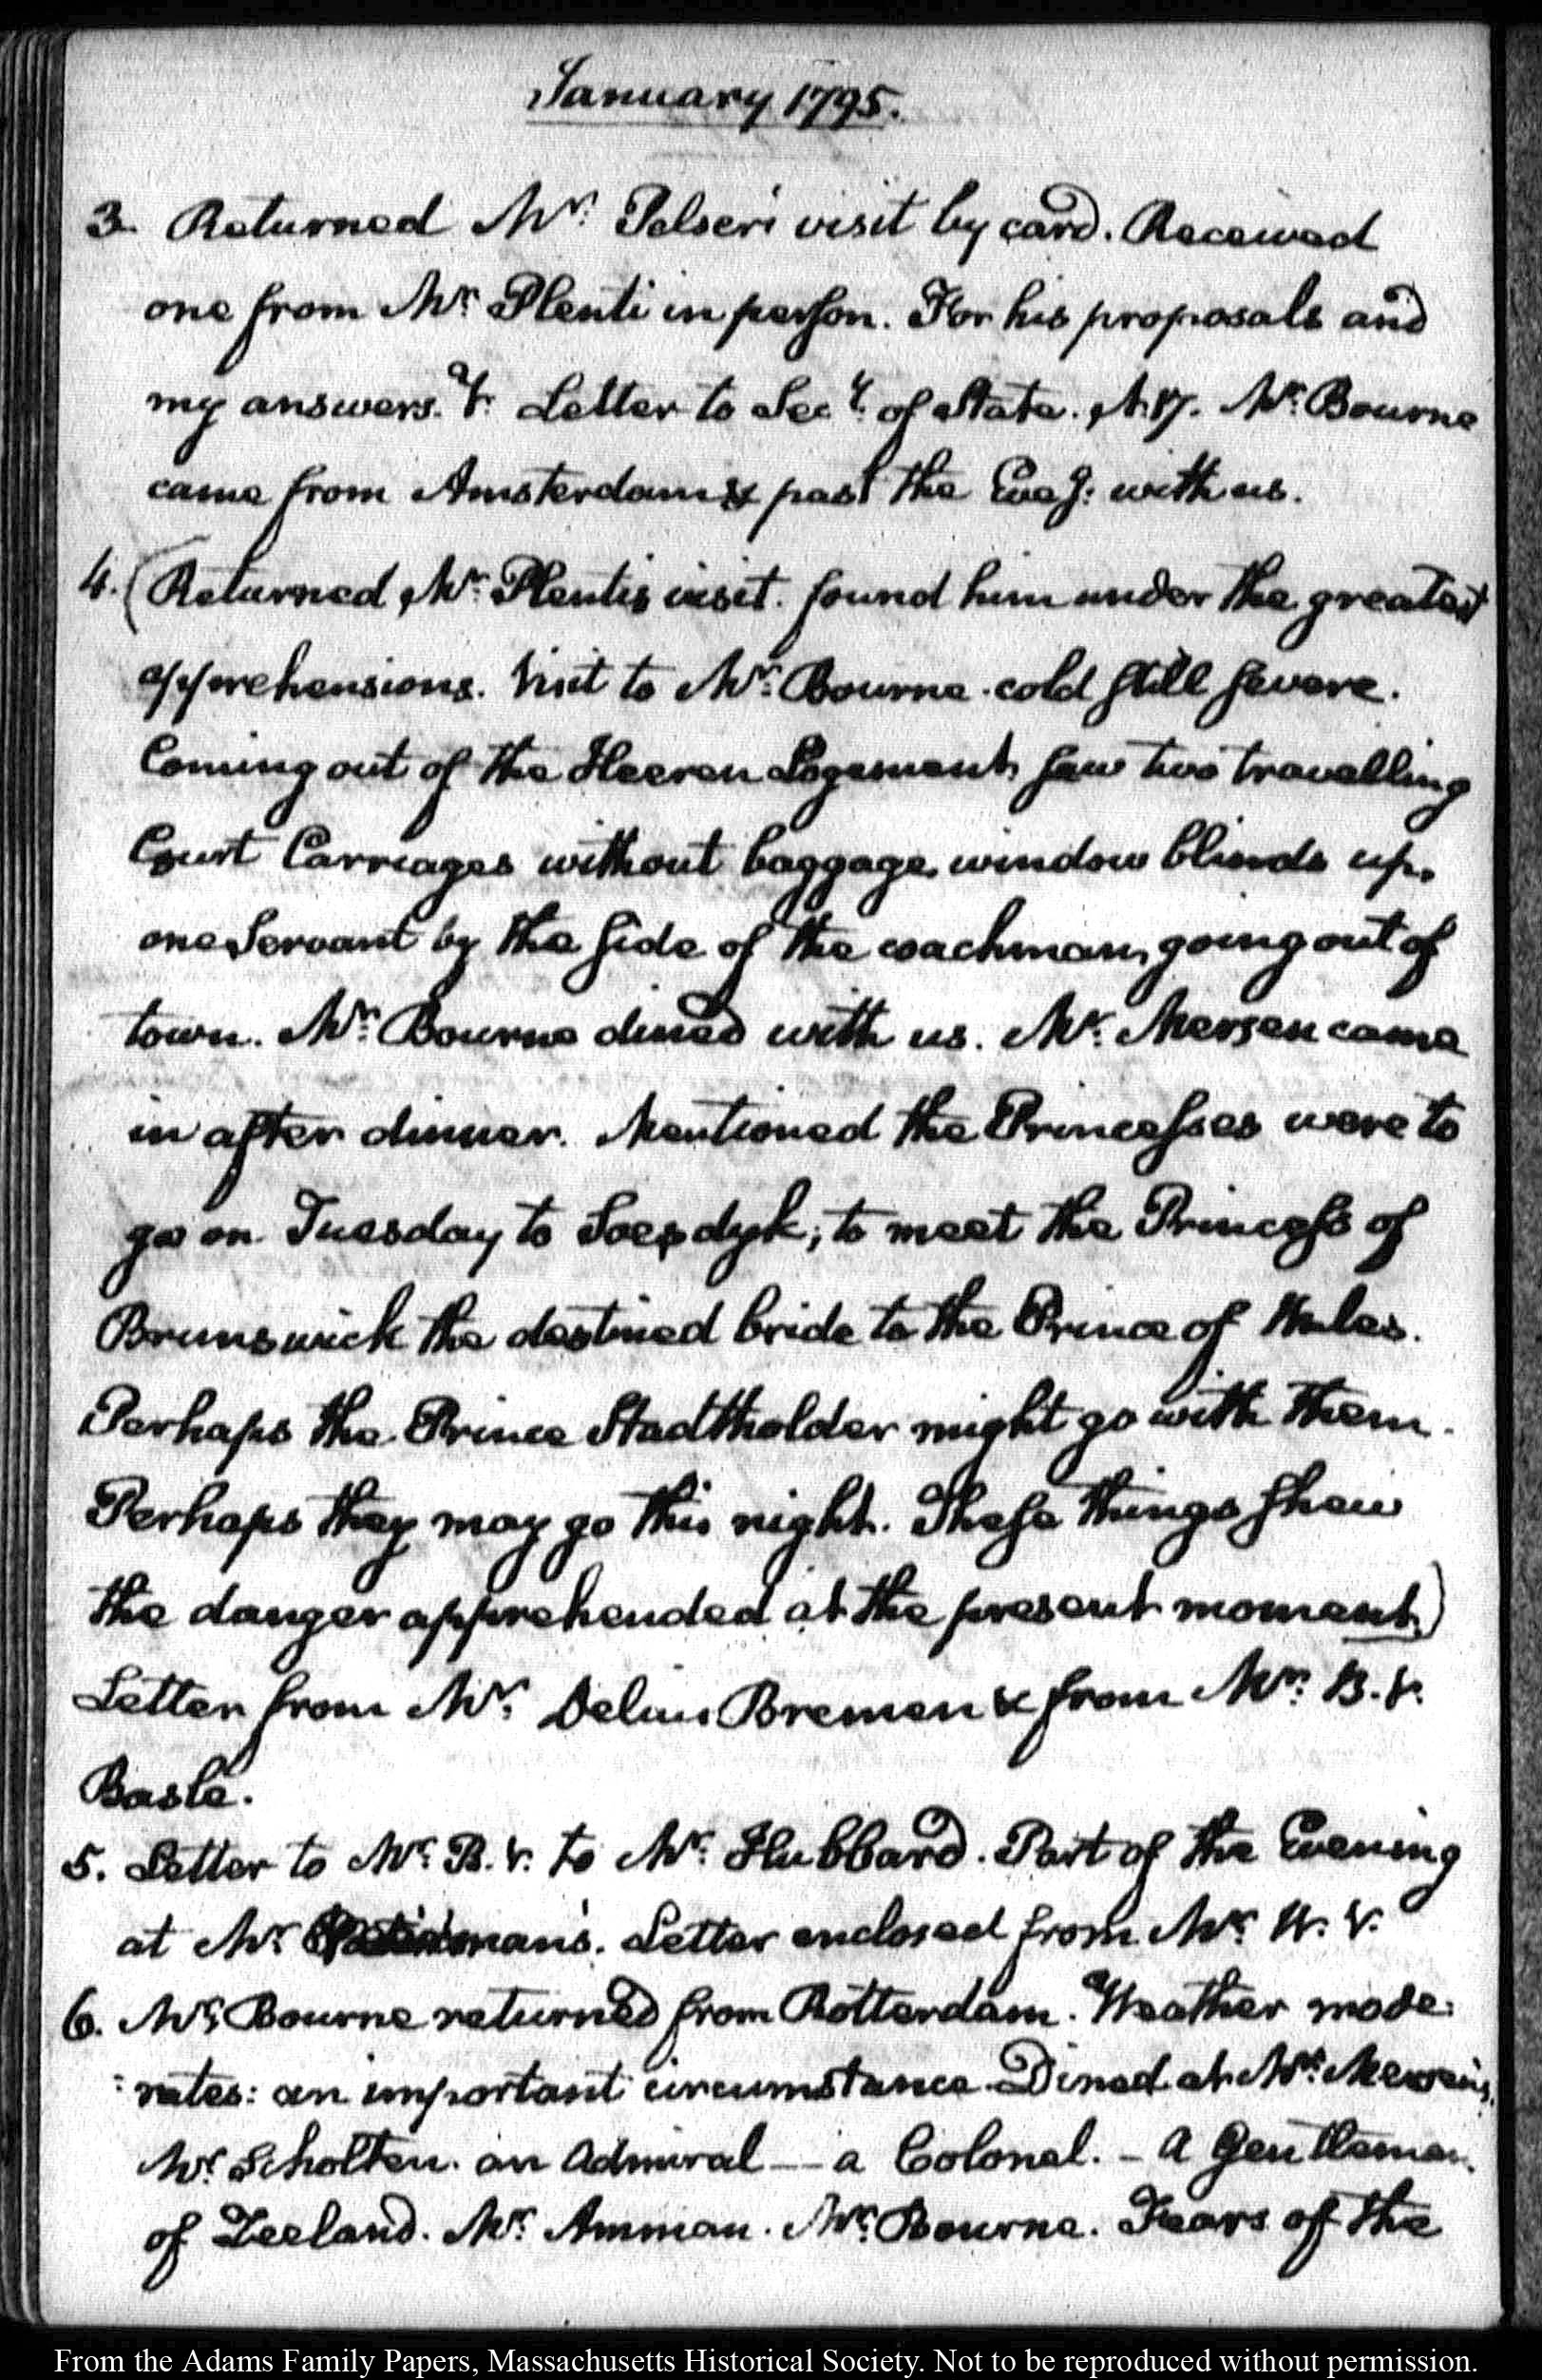 January 1795.
3. Returned Mr: visit by card. Received
one from Mr: Plenti in person. For his proposals and
my answers. V. Letter to Secy: of State. N. 17. Mr: Bourne
came from Amsterdam & past the Eveg: with us.
4. (Returned Mr: Plenti's visit. found him under the greatest
apprehensions. Visit to Mr: Bourne. cold still severe.
Coming out of the Heeren Logement, saw two travelling
Court Carriages without baggage, window blinds up,
one Servant by the side of the coachman, going out of
town. Mr: Bourne dined with us. Mr: Mersen came
in after dinner. Mentioned the Princesses were to
go on Tuesday to Soesdyk; to meet the Princess of
Brunswick the destined bride to the Prince of Wales.
Perhaps the Prince Stadtholder might go with them.
Perhaps they may go this night. These things shew
the danger apprehended at the present moment.)
Letter from Mr: Delius Bremen & from Mr: B. V.
Basle.
5. Letter to Mr: B. V. to Mr: Hubbard. Part of the Evening
at Mr: Letter enclosed from Mr: W. V.
6. Mr: Bourne returned from Rotterdam. Weather mode:
:rates: an important circumstance. Dined at Mr: Mersen's.
Mr: Scholten. an Admiral — a Colonel. — a Gentleman.
of Zeeland. Mr: Amman. Mr: Bourne. Fears of the
From the Adams Family Papers, Massachusetts Historical Society. Not to be reproduced without permission.